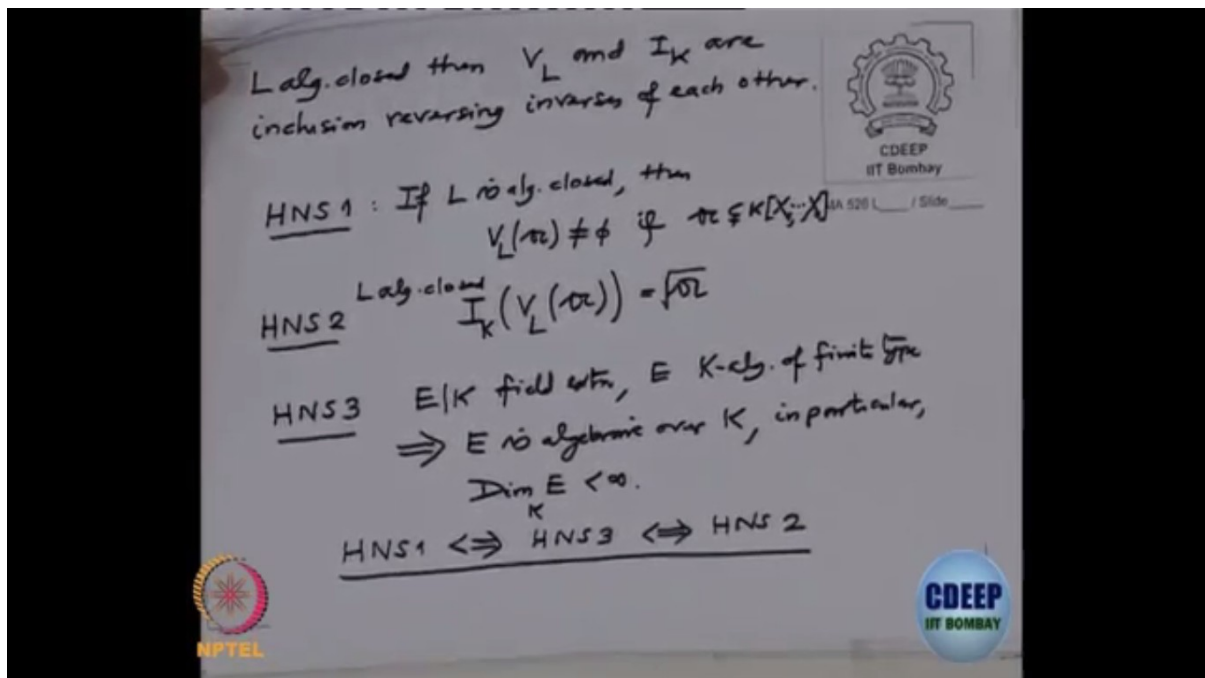 L alg. closed then V_L and I_K are
inclusion reversing inverses of each other.
CDEEP
IIT Bombay
MA 526 L____ / Slide____
HNS 1 : If L is alg. closed, then
V_L(𝔞) ≠ ϕ if 𝔞 ⊊ K[X_1, ⋯ X_n]
HNS 2 L alg. closed I_K(V_L(𝔞)) = √𝔞
HNS 3 E|K field extn, E K-alg. of finite type
⇒ E is algebraic over K, in particular,
Dim_K E < ∞.
HNS 1 ⇔ HNS 3 ⇔ HNS 2
NPTEL
CDEEP
IIT BOMBAY